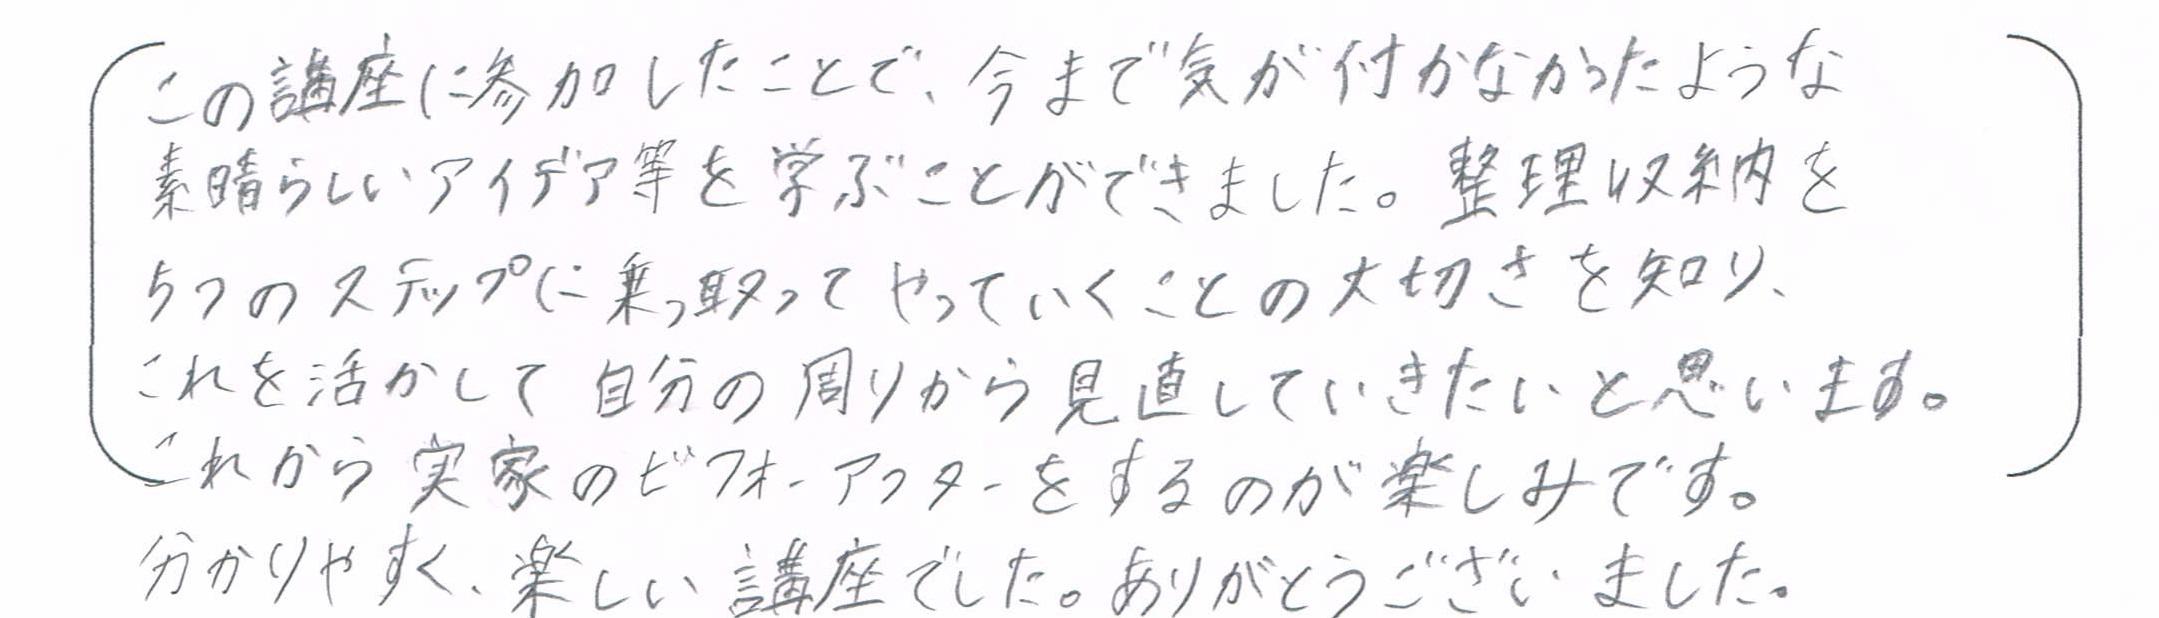 この講座に参加したことで、今まで気が付かなかったような
素晴らしいアイデア等を学ぶことができました。整理収納を
5つのステップに乗っ取ってやっていくことの大切さを知り、
これを活かして自分の周りから見直していきたいと思います。
これから実家のビフォーアフターをするのが楽しみです。
分かりやすく、楽しい講座でした。ありがとうございました。